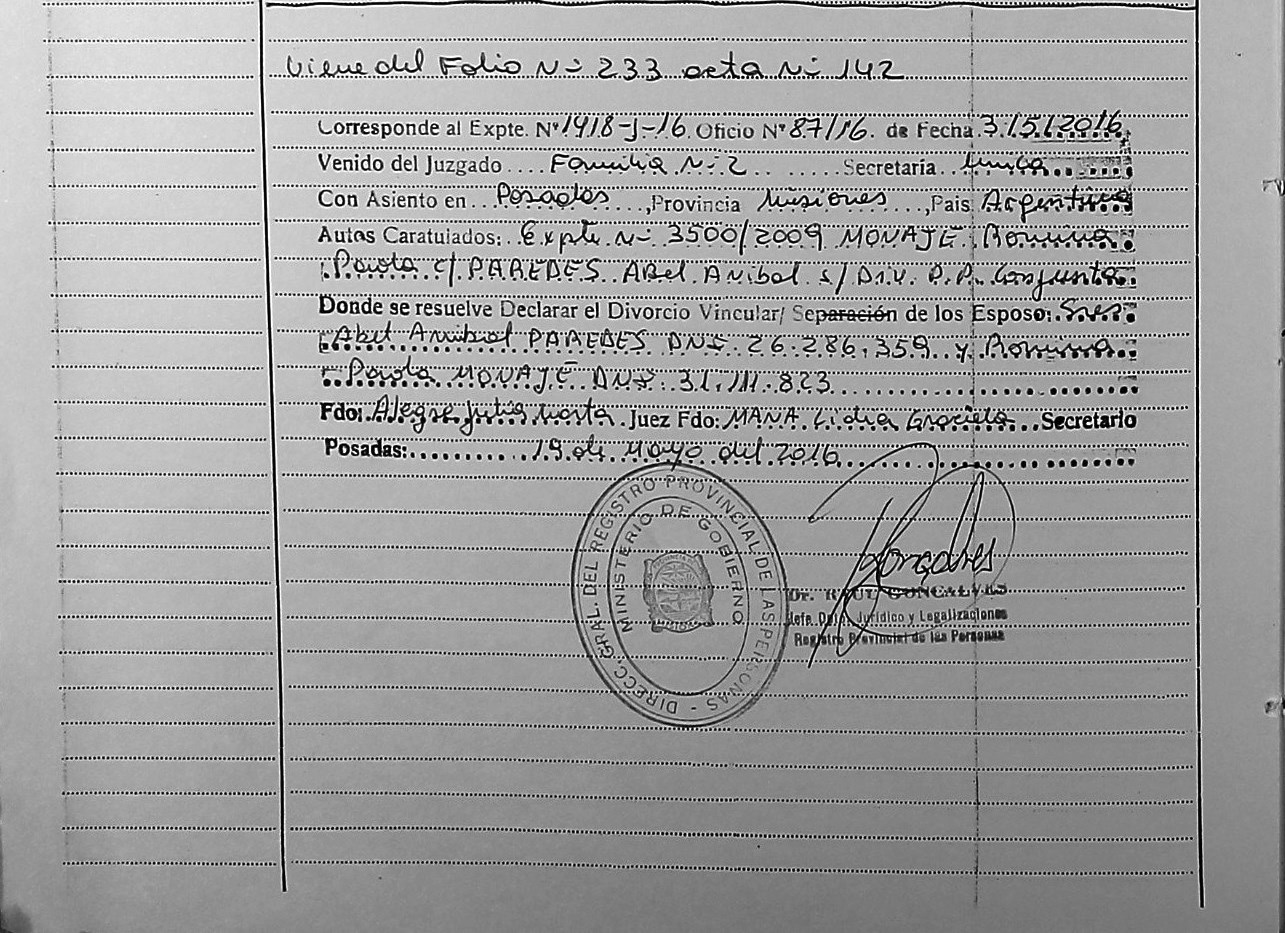 Viene del Folio Nº 233 acta Nº 142
Corresponde al Expte. Nº 1418-J-16. Oficio Nº 87/16. de Fecha 3/5/2016
Venido del Juzgado .... Familia Nº 2 ........ Secretaria ..
Con Asiento en .. Posadas ...., Provincia Misiones ....., Pais Argentina
Autos Caratulados: Expte Nº 3500/2009 MONAJE Romina
Paola c/ PAREDES Abel Anibal s/ Div. P.P. Conjunta
Donde se resuelve Declarar el Divorcio Vincular/ Separación de los Esposo: Sres
Abel Anibal PAREDES DNI 26.286.359 y Romina
Paola MONAJE DNI 31.111.823
Fdo: Alegre Julia Marta. Juez Fdo: MANA Lidia Graciela... Secretario
Posadas:.......... 19 de Mayo del 2016
DIRECC. GRAL. DEL REGISTRO PROVINCIAL DE LAS PERSONAS -
MINISTERIO DE GOBIERNO
Goncalves
Dr. RAUL GONCALVES
Jefe Dpto. Jurídico y Legalizaciones
Registro Provincial de las Personas